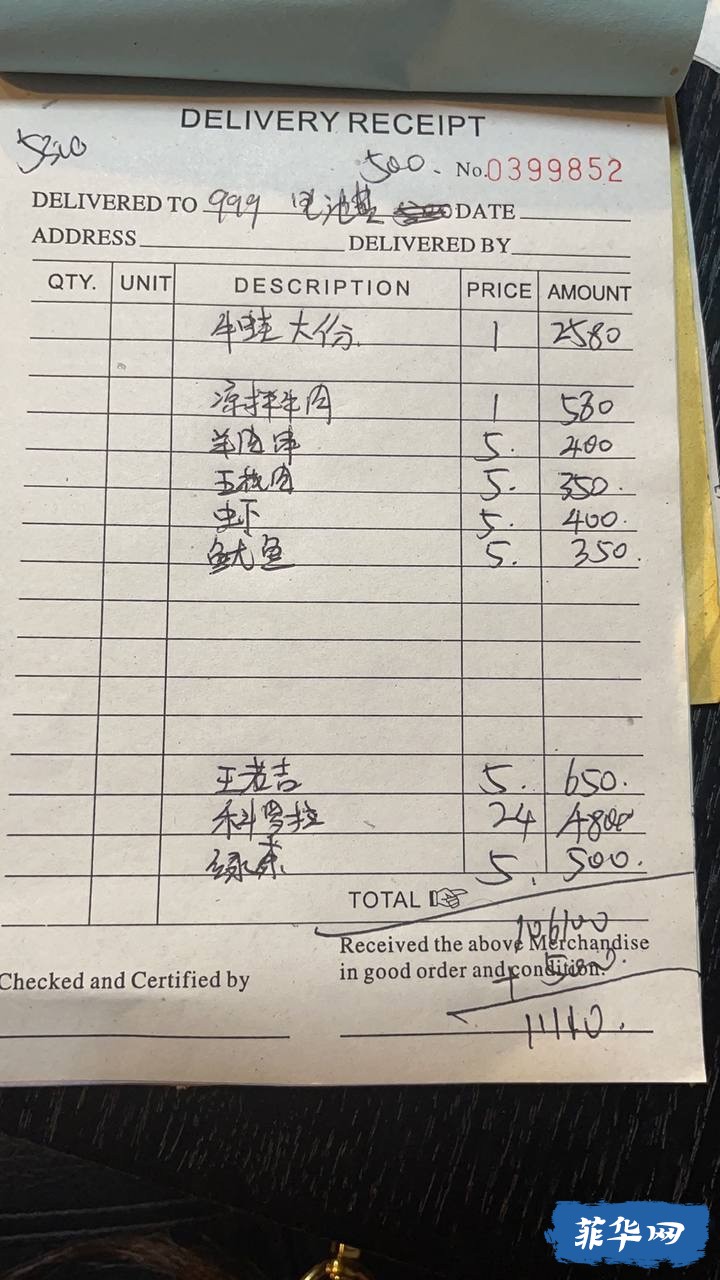 DELIVERY RECEIPT
500. No.0399852
DELIVERED TO 999 电池 DATE
ADDRESS DELIVERED BY
QTY. UNIT DESCRIPTION PRICE AMOUNT
牛蛙大份 1 2580
凉拌牛肉 1 580
羊肉串 5. 400
五花肉 5. 350.
虾 5. 400.
鱿鱼 5. 350.
王老吉 5. 650.
科罗拉 24 4800
绿茶 5. 500.
TOTAL
Received the above Merchandise
Checked and Certified by
in good order and condition.
11110.
菲华网